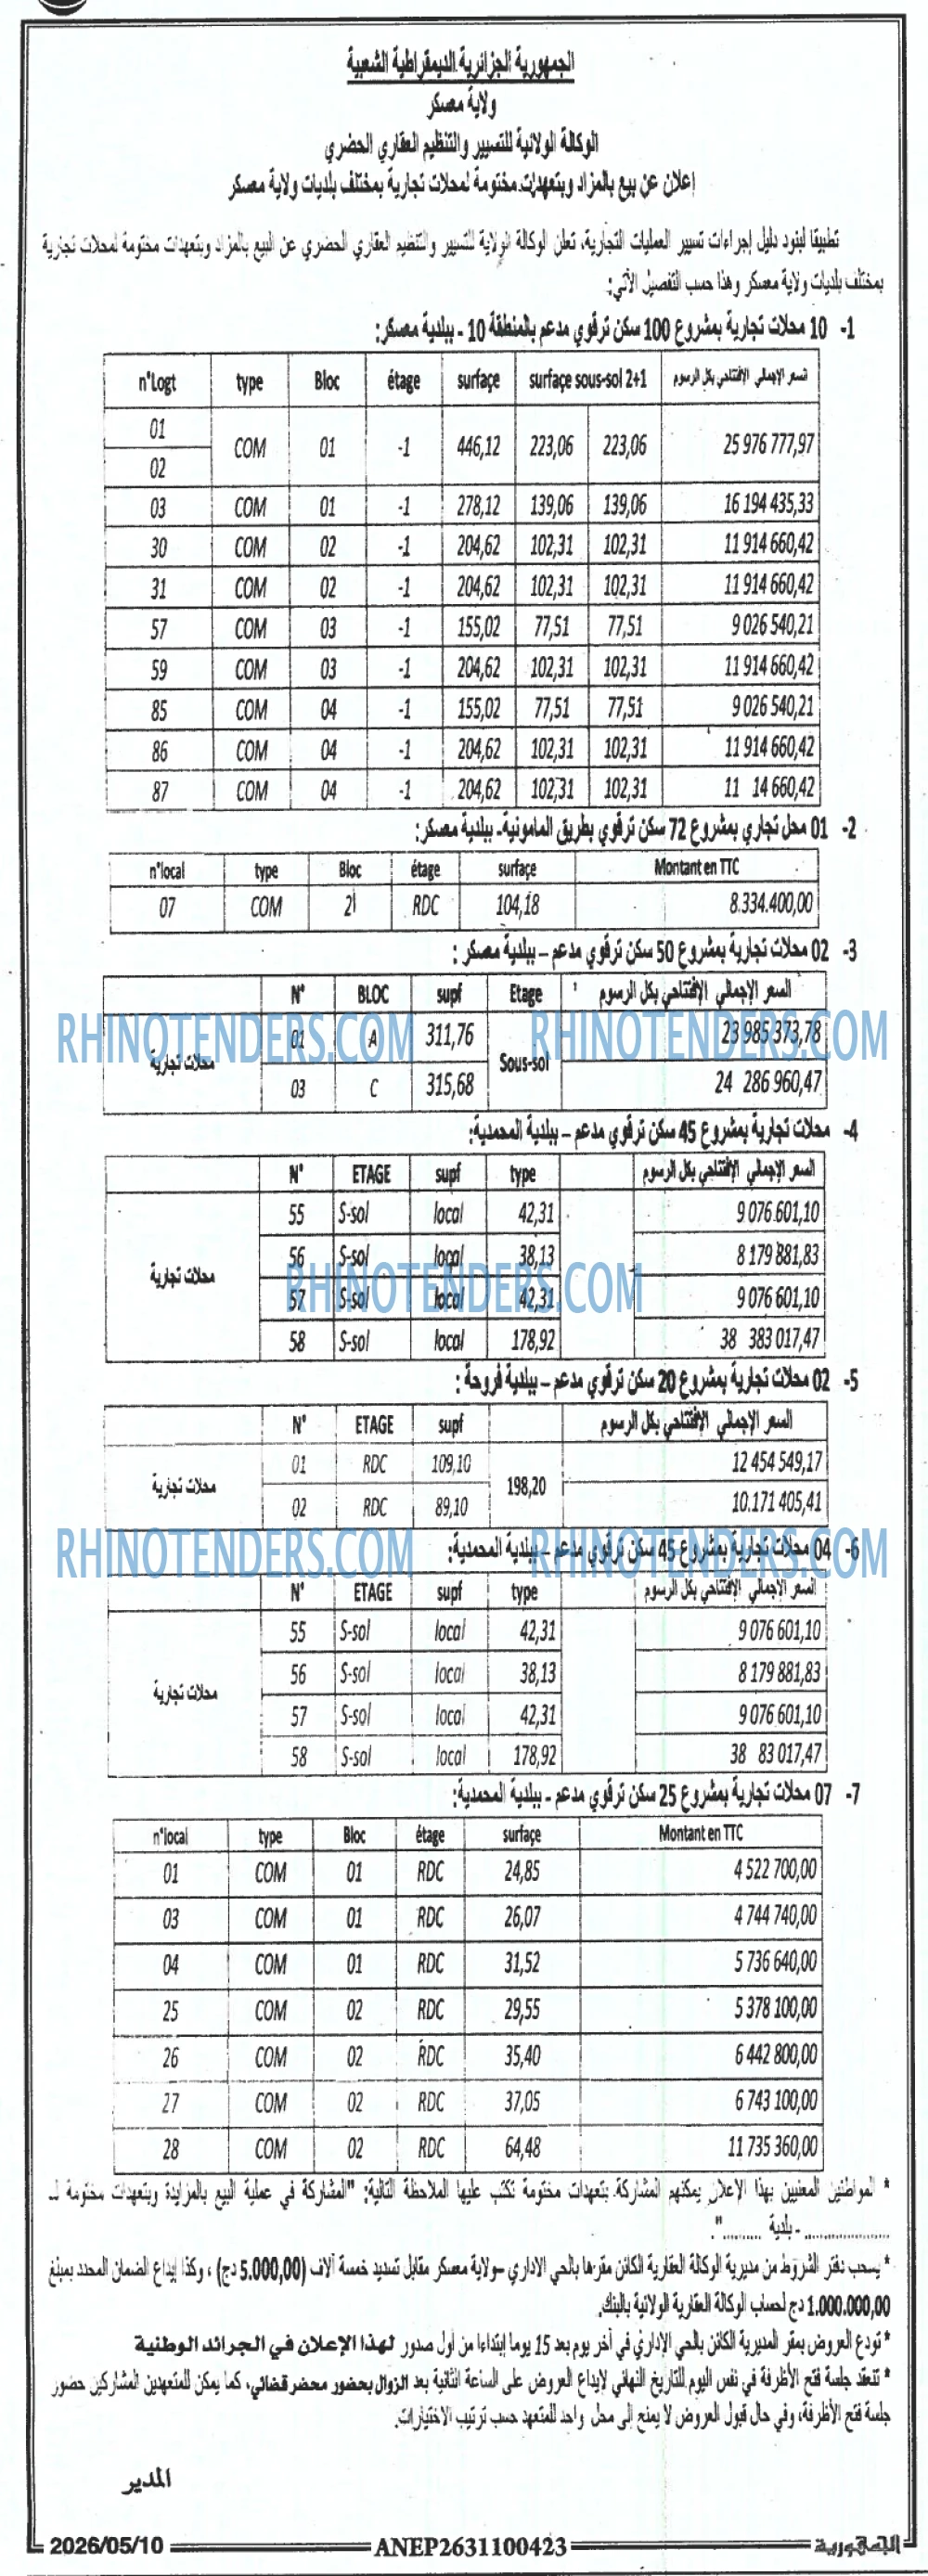 الجمهورية الجزائرية الديمقراطية الشعبية
ولاية معسكر
الوكالة الولائية للتسيير والتنظيم العقاري الحضري
إعلان عن بيع بالمزاد وبتعهدات مختومة لمحلات تجارية بمختلف بلديات ولاية معسكر
تطبيقا لبنود دليل إجراءات تسيير العمليات التجارية، تعلن الوكالة الولاية للتسيير والتنظيم العقاري الحضري عن البيع بالمزاد وبتعهدات مختومة لمحلات تجارية
بمختلف بلديات ولاية معسكر وهذا حسب التفصيل الآتي:
1- 10 محلات تجارية بمشروع 100 سكن ترقوي مدعم بالمنطقة 10 - ببلدية معسكر:
n°Logt type Bloc étage surface surface sous-sol 2+1 السعر الإجمالي الإفتتاحي بكل الرسوم
01
02 COM 01 -1 446,12 223,06 223,06 25 976 777,97
03 COM 01 -1 278,12 139,06 139,06 16 194 435,33
30 COM 02 -1 204,62 102,31 102,31 11 914 660,42
31 COM 02 -1 204,62 102,31 102,31 11 914 660,42
57 COM 03 -1 155,02 77,51 77,51 9 026 540,21
59 COM 03 -1 204,62 102,31 102,31 11 914 660,42
85 COM 04 -1 155,02 77,51 77,51 9 026 540,21
86 COM 04 -1 204,62 102,31 102,31 11 914 660,42
87 COM 04 -1 204,62 102,31 102,31 11 14 660,42
2- 01 محل تجاري بمشروع 72 سكن ترقوي بطريق المامونية- ببلدية معسكر:
n°local type Bloc étage surface Montant en TTC
07 COM 21 RDC 104,18 8.334.400,00
3- 02 محلات تجارية بمشروع 50 سكن ترقوي مدعم – ببلدية معسكر :
N° BLOC supf Etage السعر الإجمالي الإفتتاحي بكل الرسوم
محلات تجارية 01 A 311,76 Sous-sol 23 985 373,78
03 C 315,68 24 286 960,47
4- محلات تجارية بمشروع 45 سكن ترقوي مدعم – ببلدية المحمدية:
N° ETAGE supf type السعر الإجمالي الإفتتاحي بكل الرسوم
محلات تجارية 55 S-sol local 42,31 9 076 601,10
56 S-sol local 38,13 8 179 881,83
57 S-sol local 42,31 9 076 601,10
58 S-sol local 178,92 38 383 017,47
5- 02 محلات تجارية بمشروع 20 سكن ترقوي مدعم – ببلدية فروحة :
N° ETAGE supf السعر الإجمالي الإفتتاحي بكل الرسوم
محلات تجارية 01 RDC 109,10 198,20 12 454 549,17
02 RDC 89,10 10.171 405,41
6- 04 محلات تجارية بمشروع 45 سكن ترقوي مدعم – ببلدية المحمدية:
N° ETAGE supf type السعر الإجمالي الإفتتاحي بكل الرسوم
محلات تجارية 55 S-sol local 42,31 9 076 601,10
56 S-sol local 38,13 8 179 881,83
57 S-sol local 42,31 9 076 601,10
58 S-sol local 178,92 38 83 017,47
7- 07 محلات تجارية بمشروع 25 سكن ترقوي مدعم - ببلدية المحمدية:
n°local type Bloc étage surface Montant en TTC
01 COM 01 RDC 24,85 4 522 700,00
03 COM 01 RDC 26,07 4 744 740,00
04 COM 01 RDC 31,52 5 736 640,00
25 COM 02 RDC 29,55 5 378 100,00
26 COM 02 RDC 35,40 6 442 800,00
27 COM 02 RDC 37,05 6 743 100,00
28 COM 02 RDC 64,48 11 735 360,00
* المواطنين المعنيين بهذا الإعلان يمكنهم المشاركة بتعهدات مختومة تكتب عليها الملاحظة التالية: "المشاركة في عملية البيع بالمزايدة وبتعهدات مختومة لـ
.................. - بلدية .........".
* يسحب دفتر الشروط من مديرية الوكالة العقارية الكائن مقرها بالحي الاداري -ولاية معسكر مقابل تسديد خمسة آلاف (5.000,00 دج) ، وكذا إيداع الضمان المحدد بمبلغ
1.000.000,00 دج لحساب الوكالة العقارية الولائية بالبنك.
* تودع العروض بمقر المديرية الكائن بالحي الإداري في آخر يوم بعد 15 يوما إبتداءا من أول صدور لهذا الإعلان في الجرائد الوطنية
* تنعقد جلسة فتح الأظرفة في نفس اليوم للتاريخ النهائي لإيداع العروض على الساعة الثانية بعد الزوال بحضور محضر قضائي، كما يمكن للمتعهدين المشاركين حضور
جلسة فتح الأظرفة، وفي حال قبول العروض لا يمنح إلى محل واحد للمتعهد حسب ترتيب الاختيارات.
المدير
الجمهورية ANEP2631100423 2026/05/10
RHINOTENDERS.COM RHINOTENDERS.COM
RHINOTENDERS.COM
RHINOTENDERS.COM RHINOTENDERS.COM